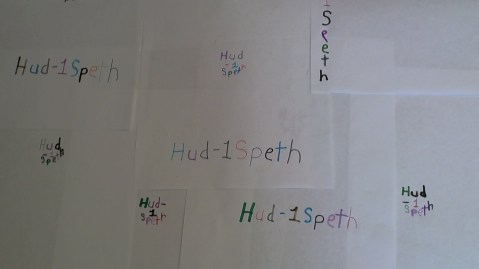 -
S
p
e
t
h
Hud-1Speth
Hud
-1
Speth
Hud
-1
Speth
Hud-1Speth
Hud-
1
Speth
Hud-1Speth
Hud
-1
Speth